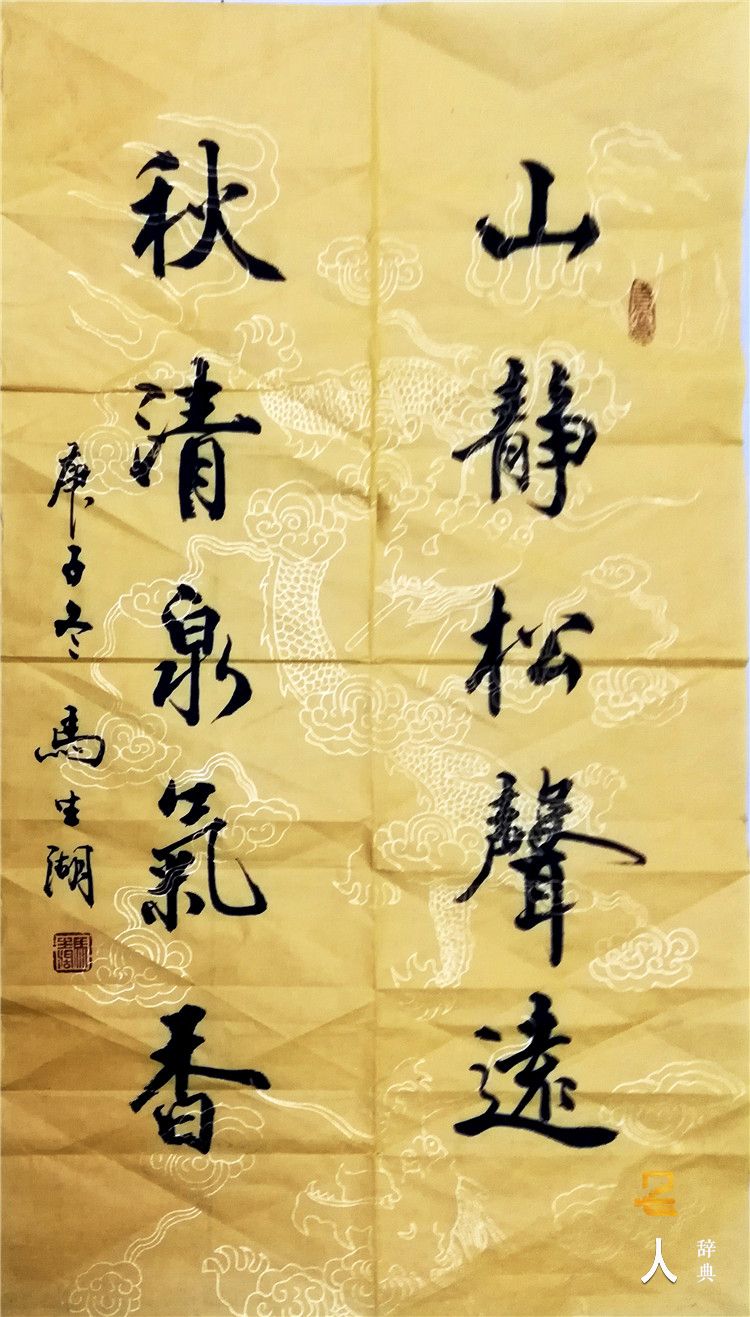 山靜松聲遠
秋清泉氣香
庚子冬 馬生湖
名人
辞典